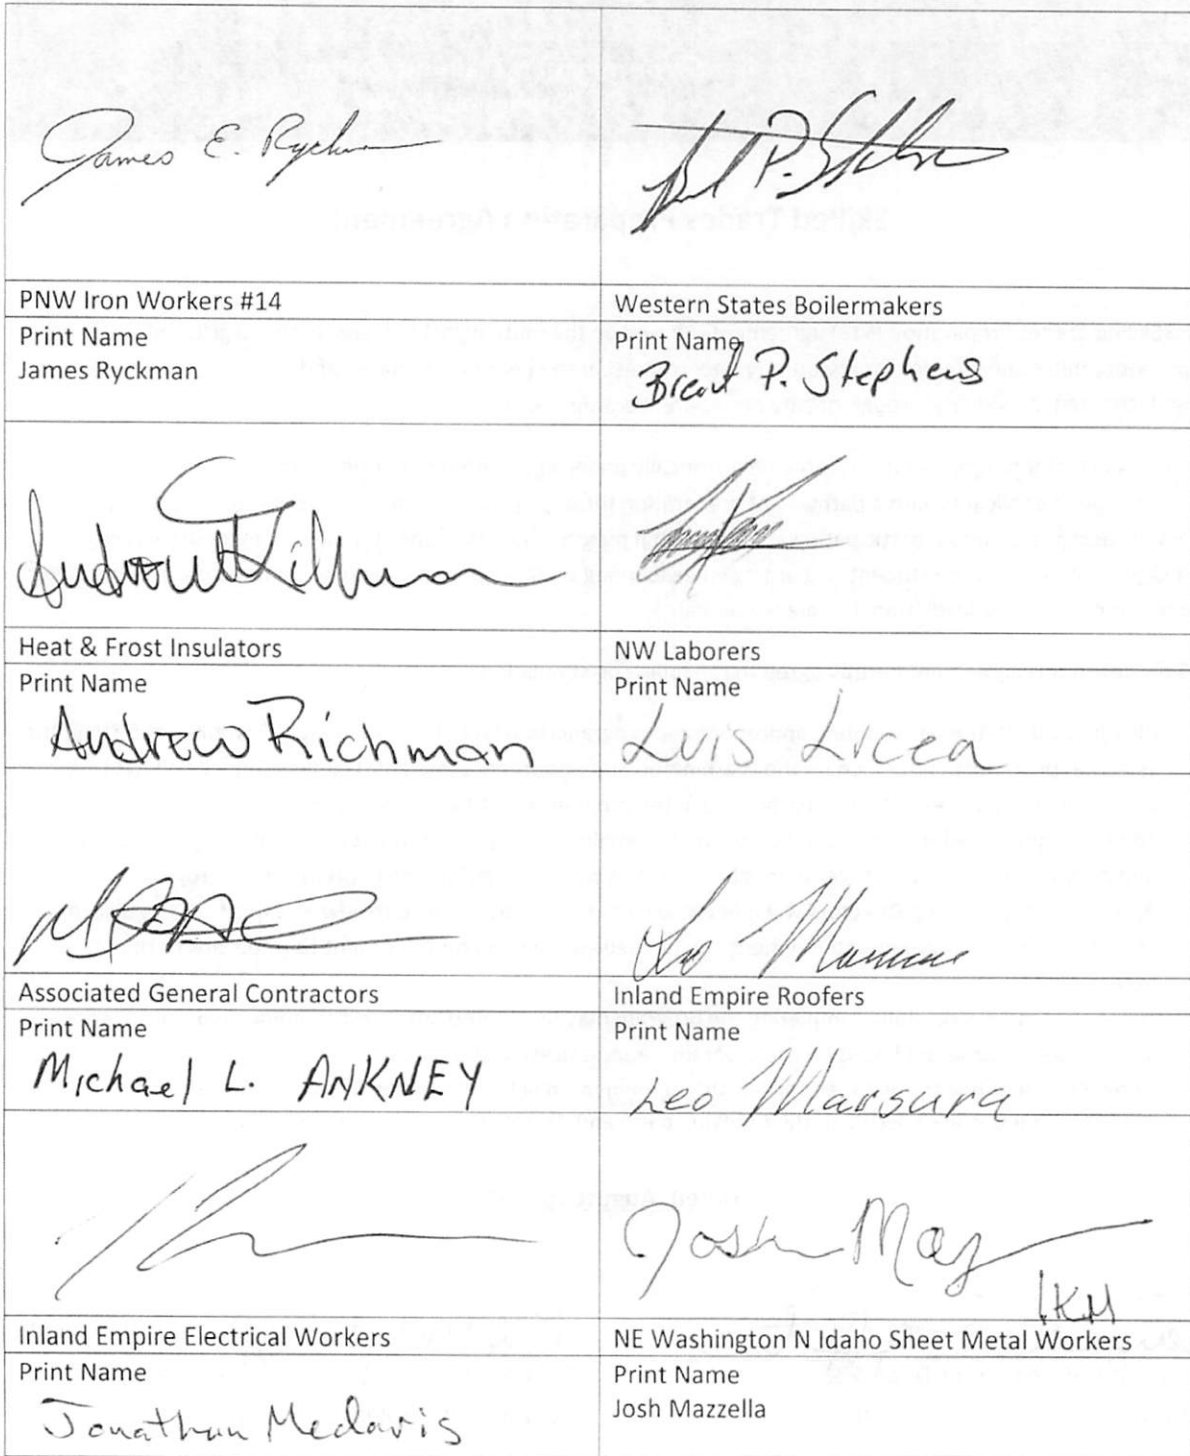 James E. Ryckman
PNW Iron Workers #14
Western States Boilermakers
Print Name
James Ryckman
Print Name
Brent P. Stephens
Andrew Richman
Heat & Frost Insulators
NW Laborers
Print Name
Andrew Richman
Print Name
Luis Licea
Associated General Contractors
Inland Empire Roofers
Print Name
Michael L. ANKNEY
Print Name
Leo Marsura
Josh Maz
Inland Empire Electrical Workers
NE Washington N Idaho Sheet Metal Workers
Print Name
Jonathan Medaris
Print Name
Josh Mazzella